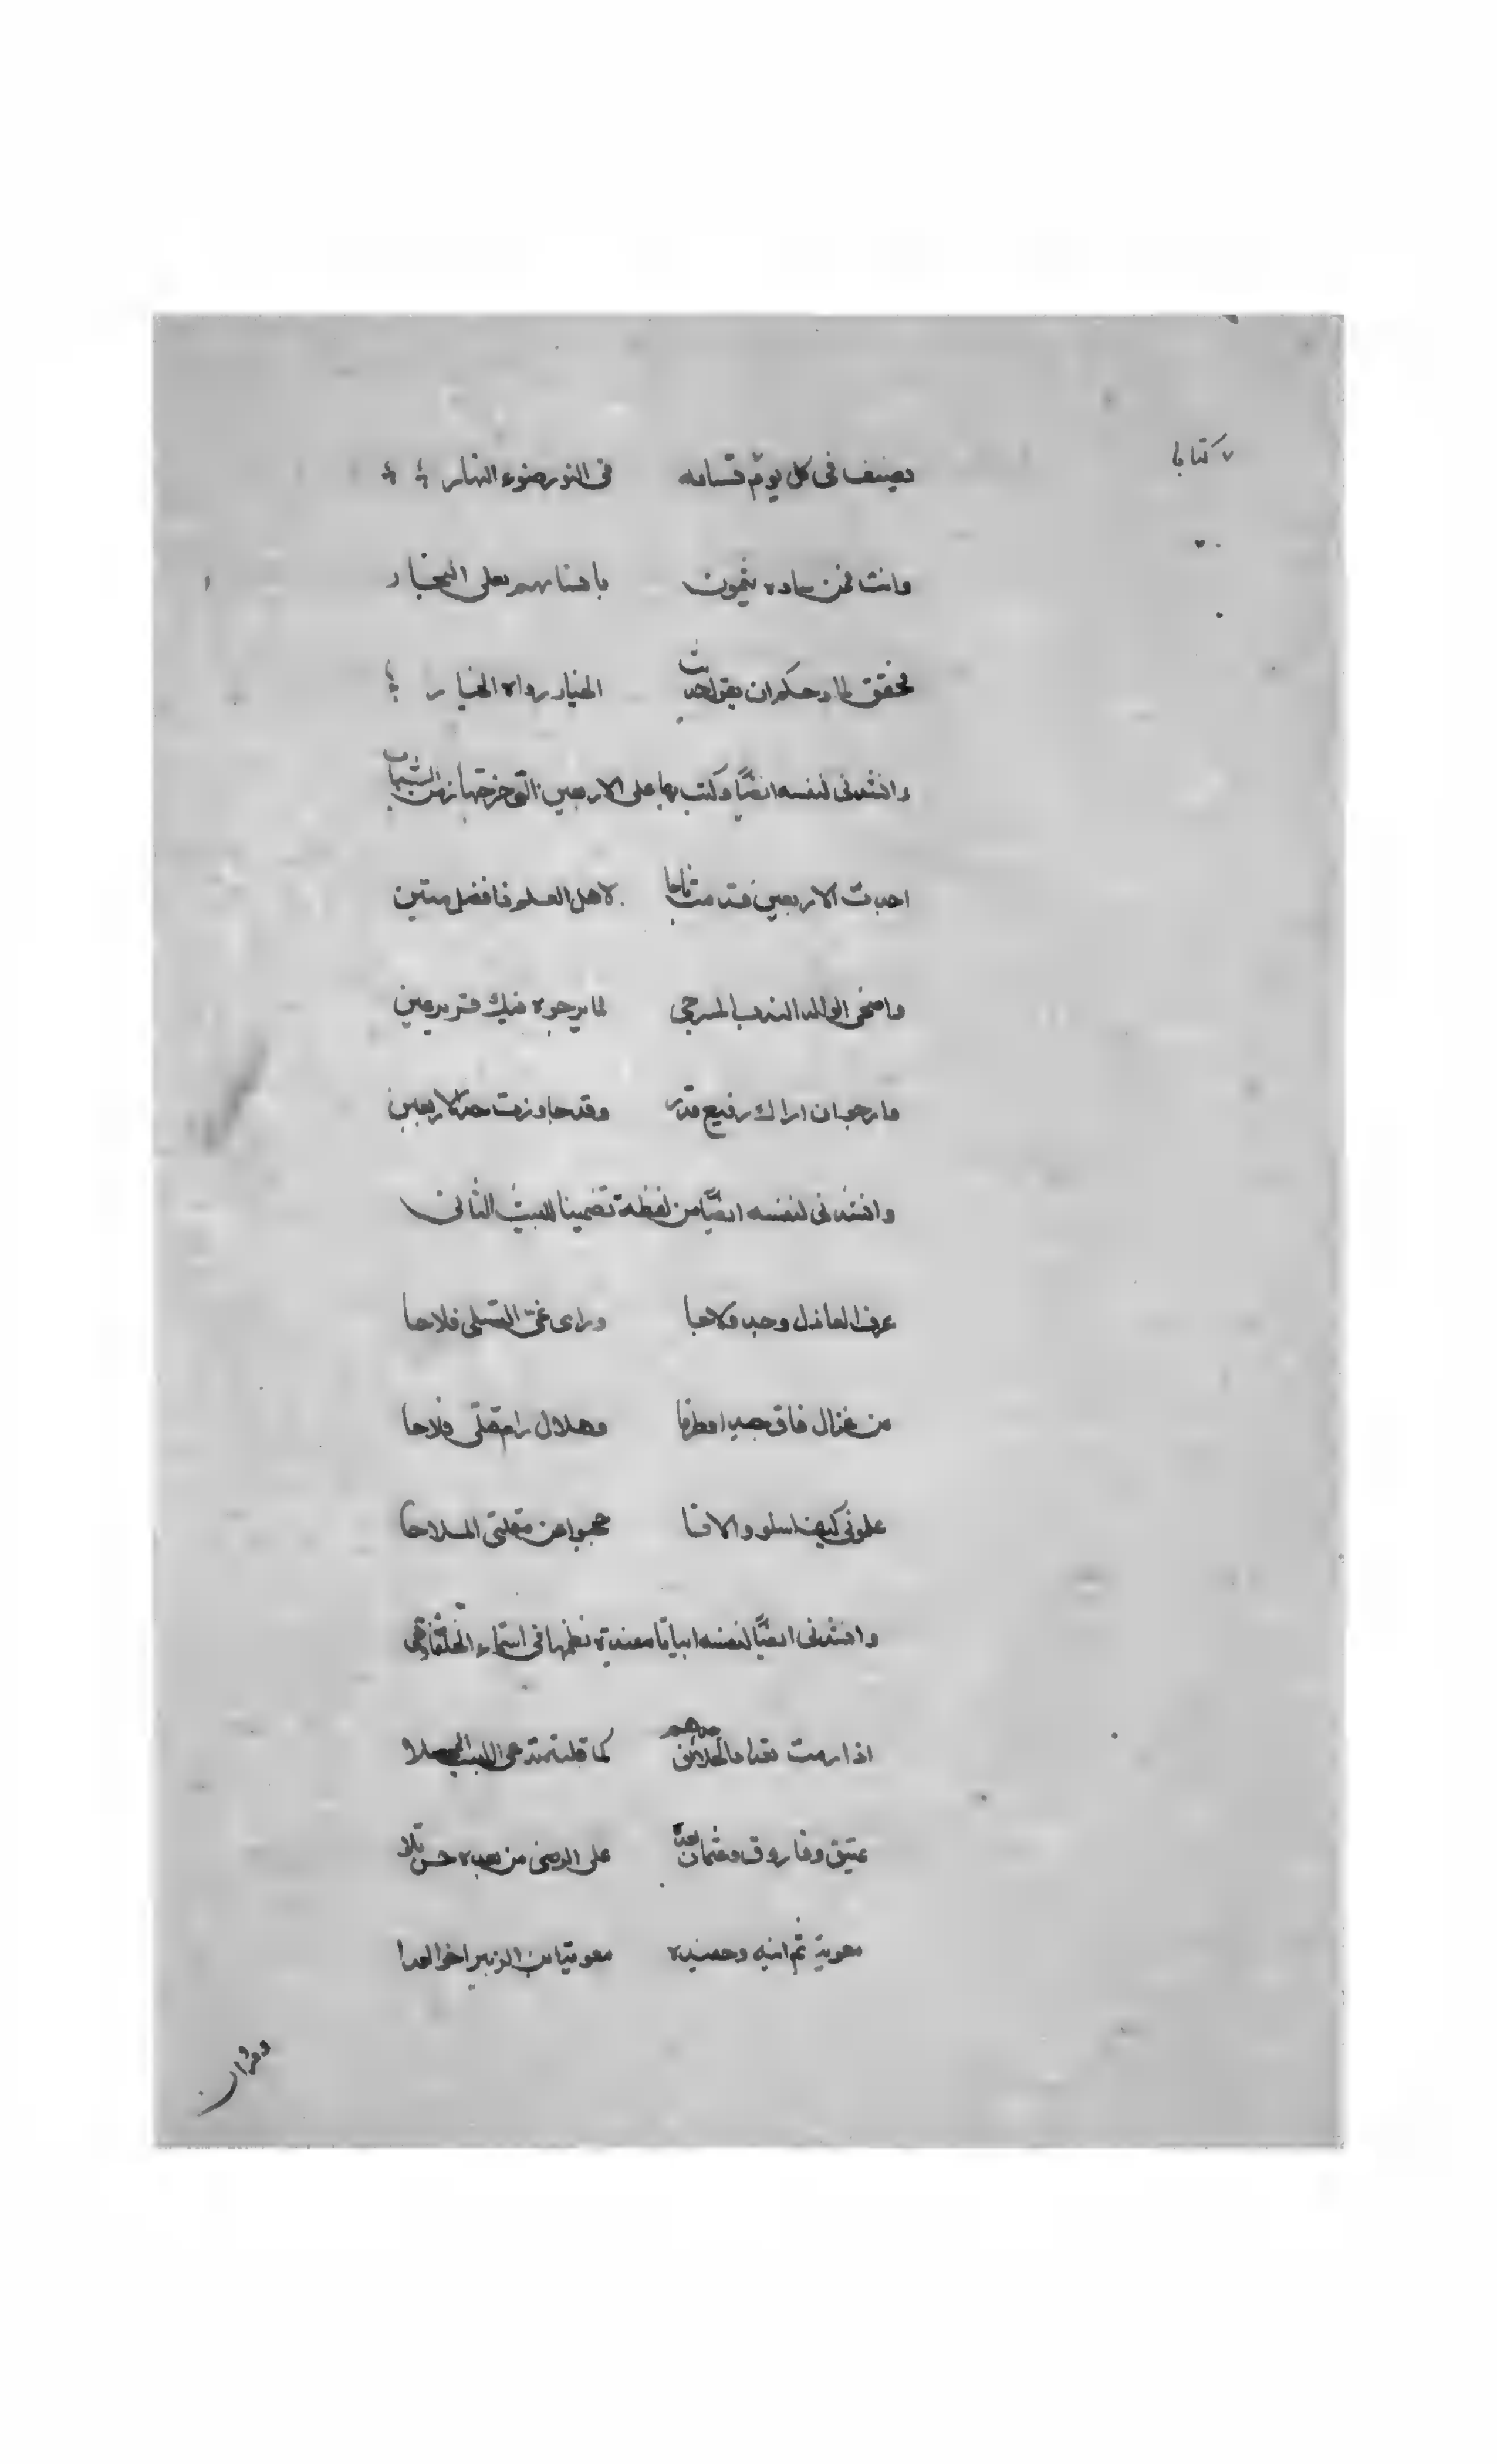 كتابا
يصنف في كل يوم تسامه في النور ضوء النهار
وانت فمن ساده ينمون باسنادهم بعلى البخار
فحقق لما دحكم ان يقول حديث الخيار رواه الخيار
وانشدني لنفسه ايضًا وكتب بها على الاربعين التي خرجتها زمن الشباب
احدت الاربعين فدمت تاجا لاهل العلم فافضل متين
واضحى الوالد الندب المرجى لما يرجوه فيك قرير عين
وارجو ان اراك رفيع قدر وقد جاوزت حد الاربعين
وانشدني لنفسه ايضًا من لفظه تضمينا للبيت الثاني
عرف العاذل وجدي فلاحا وراى غيّ التسلي فلاحا
من غزال فاق جيدا وطرفا وهلال رام قتلي فلاحا
علموني كيف اسلو والا فا حجبوا عن مقلتي الملاحا
وانشدني ايضًا لنفسه ابياتا مفيدة نظمها في اسماء الخلفاء وهي
اذا رمت تعداد الخلائف عدهم كما قلته تدعى اللبيب المحصلا
عتيق وفاروق وعثمان بعده علي الرضى من بعده حسن تلا
معوية ثم ابنه وحفيده معوية ابن الزبير اخو العلا
ومروان